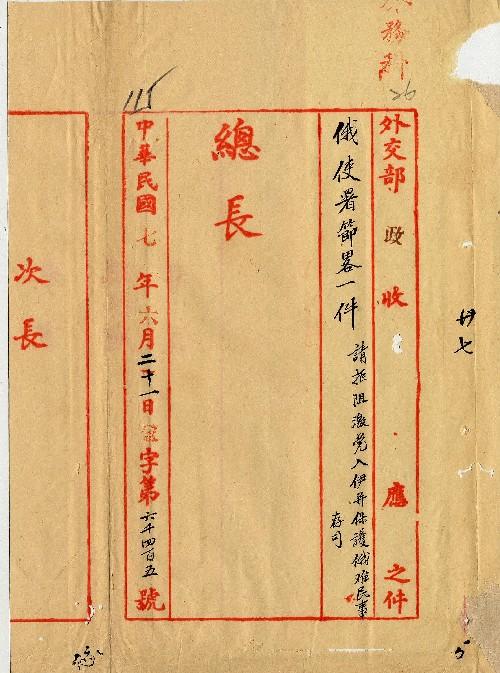 115
26
外交部 政 收 應 之件
俄使署節畧一件 請抵阻激党入伊并保護俄难民事
存司
總長
中華民國七年六月二十一日 字第六千四百五號
次長
廿七